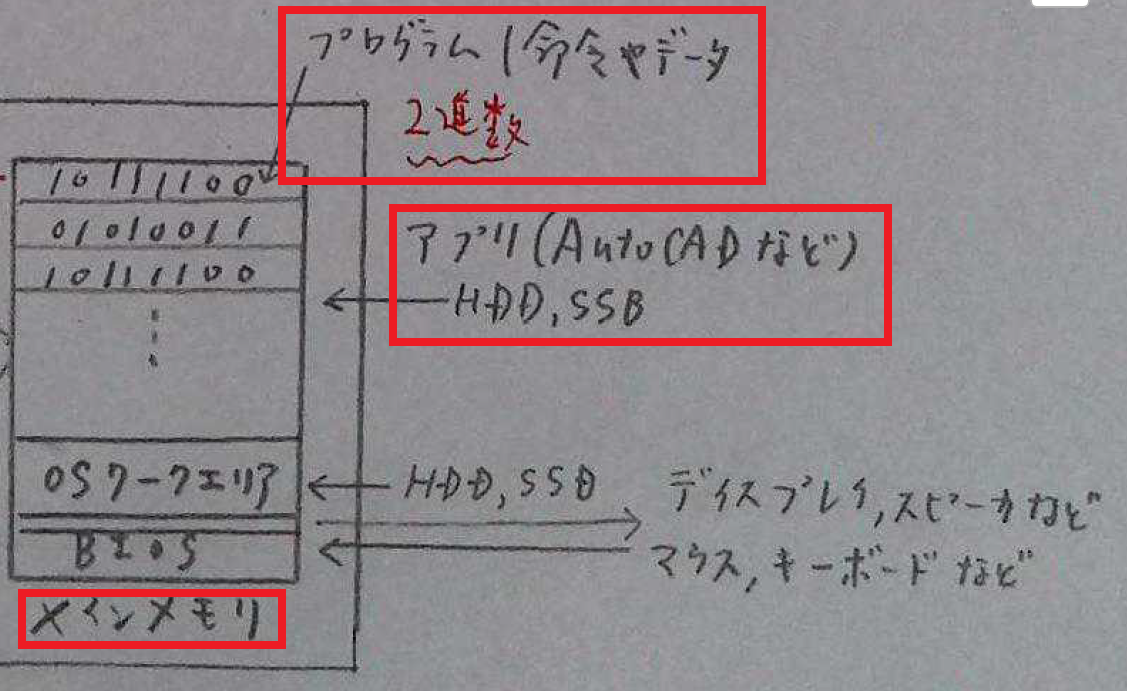 プログラム/命令やデータ
2進数
10111100
01010011
アプリ(AutoCADなど)
10111100
HDD,SSD
OSワークエリア
HDD,SSD
ディスプレイ,スピーカなど
BIOS
マウス,キーボードなど
メインメモリ